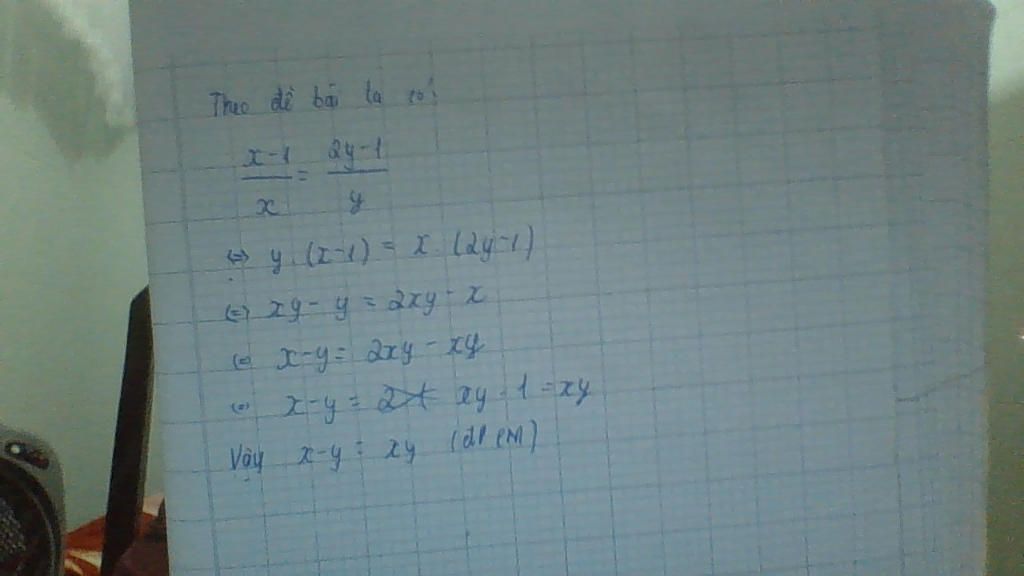 Theo đề bài ta có:
x-1 / x = 2y-1 / y
<=> y.(x-1) = x.(2y-1)
<=> xy - y = 2xy - x
<=> x-y = 2xy - xy
<=> x-y = xy . 1 = xy
Vậy x-y = xy (đPCM)